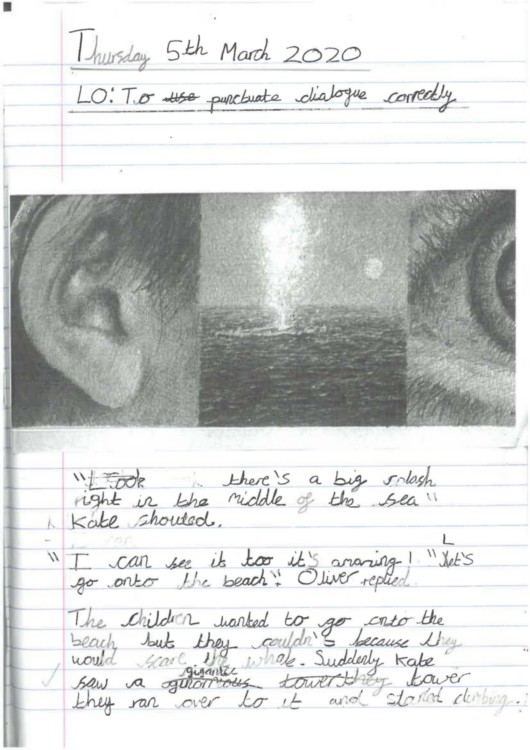 Thursday 5th March 2020
LO: To use punctuate dialogue correctly
"Look there's a big splash
right in the middle of the sea"
Kate shouted.
"I can see it too it's amazing! "Let's
go onto the beach"! Oliver replied
The children wanted to go onto the
beach but they couldn't because they
would scare the whale. Suddenly Kate
saw a ginormous gigantic tower they tower
they ran over to it and started climbing.